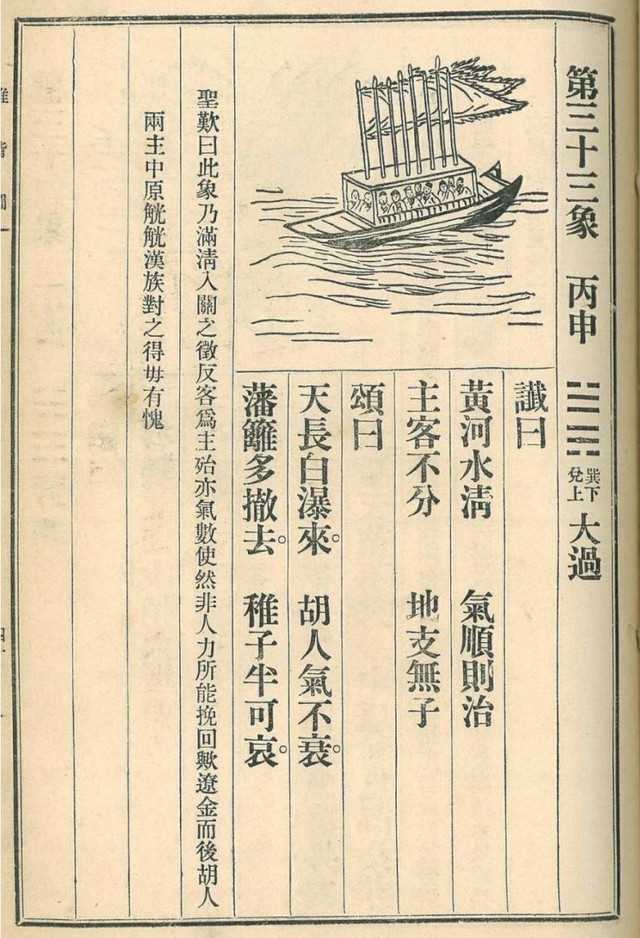 第三十三象　丙申　䷛　巽下兌上　大過
讖曰
黃河水淸　氣順則治
主客不分　地支無子
頌曰
天長白瀑來。胡人氣不衰。
藩籬多撤去。稚子半可哀。
聖歎曰此象乃滿淸入關之徵反客爲主殆亦氣數使然非人力所能挽回歟遼金而後胡人
兩主中原觥觥漢族對之得毋有愧